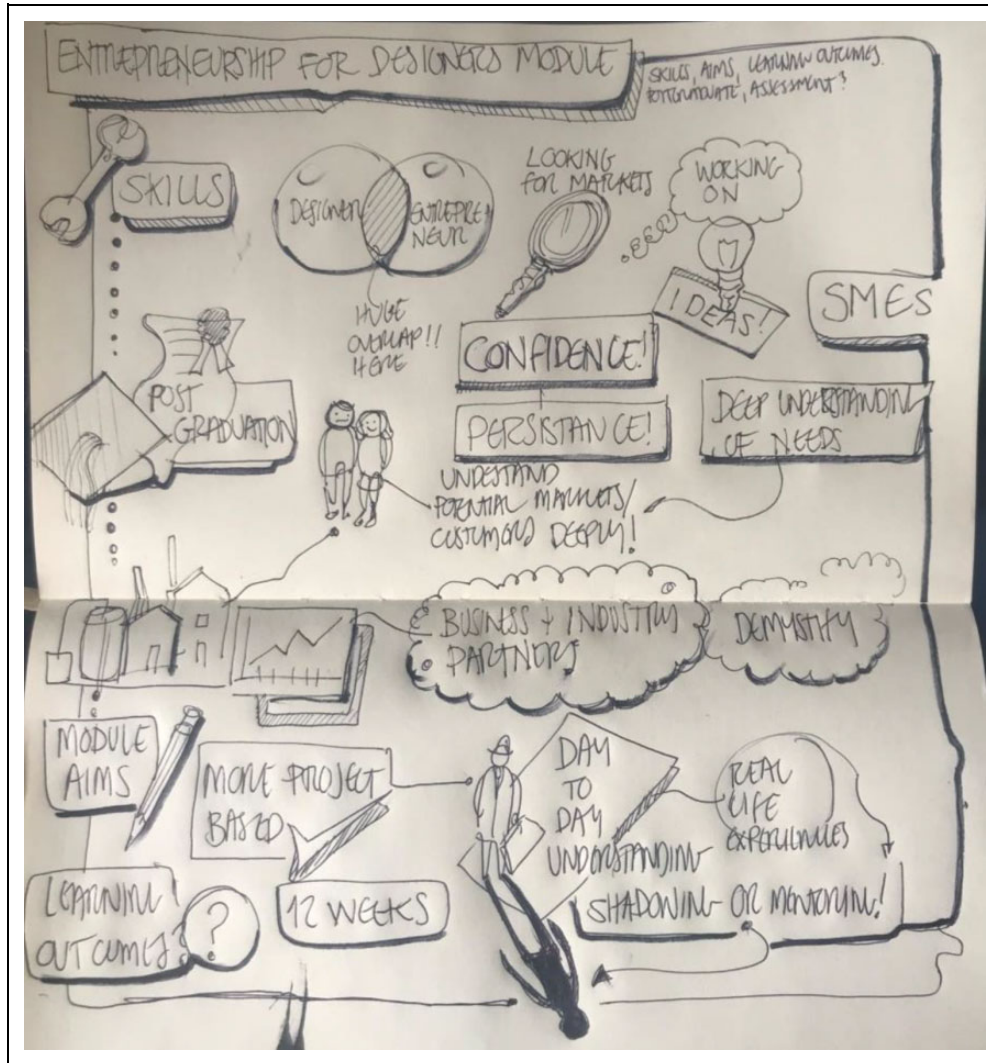 ENTREPRENEURSHIP FOR DESIGNERS MODULE
SKILLS, AIMS, LEARNING OUTCOMES.
POSTGRADUATE, ASSESSMENT?
SKILLS
DESIGNER
ENTREPRE
NEUR
HUGE
OVERLAP!!
HERE
LOOKING
FOR MARKETS
WORKING
ON
IDEAS!
SMES
CONFIDENCE!
PERSISTANCE!
DEEP UNDERSTANDING
OF NEEDS
POST
GRADUATION
UNDERSTAND
POTENTIAL MARKETS/
CUSTOMERS DEEPLY!
BUSINESS + INDUSTRY
PARTNERS
DEMYSTIFY
MODULE
AIMS
MORE PROJECT
BASED
DAY
TO
DAY
UNDERSTANDING
REAL
LIFE
EXPERIENCES
SHADOWING OR MENTORING!
LEARNING
OUTCOMES?
?
12 WEEKS